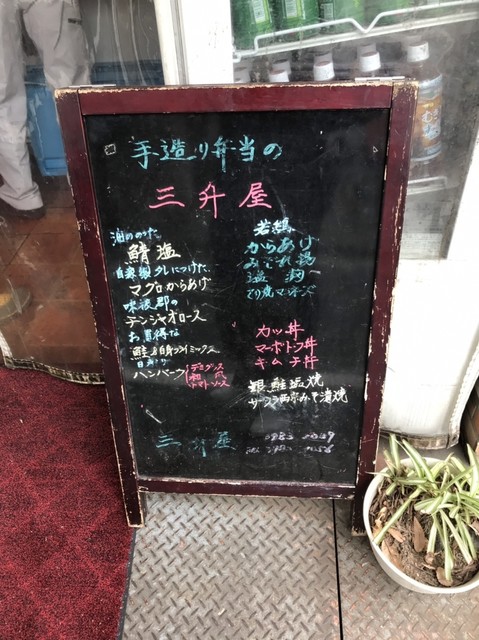 手造り弁当の
三升屋
油ののった
鯖塩
自家製タレにつけた
マグロからあげ
チンジャオロース
お買得な
鮭&白身フライミックス
ハンバーグ
デミグラス
和風
トマトソース
若鶏
からあげ
みぞれ揚
塩麹
てり焼マヨネーズ
カツ丼
マーボードーフ丼
キムチ丼
銀鮭塩焼
サーフラ西京みそ漬焼
三升屋